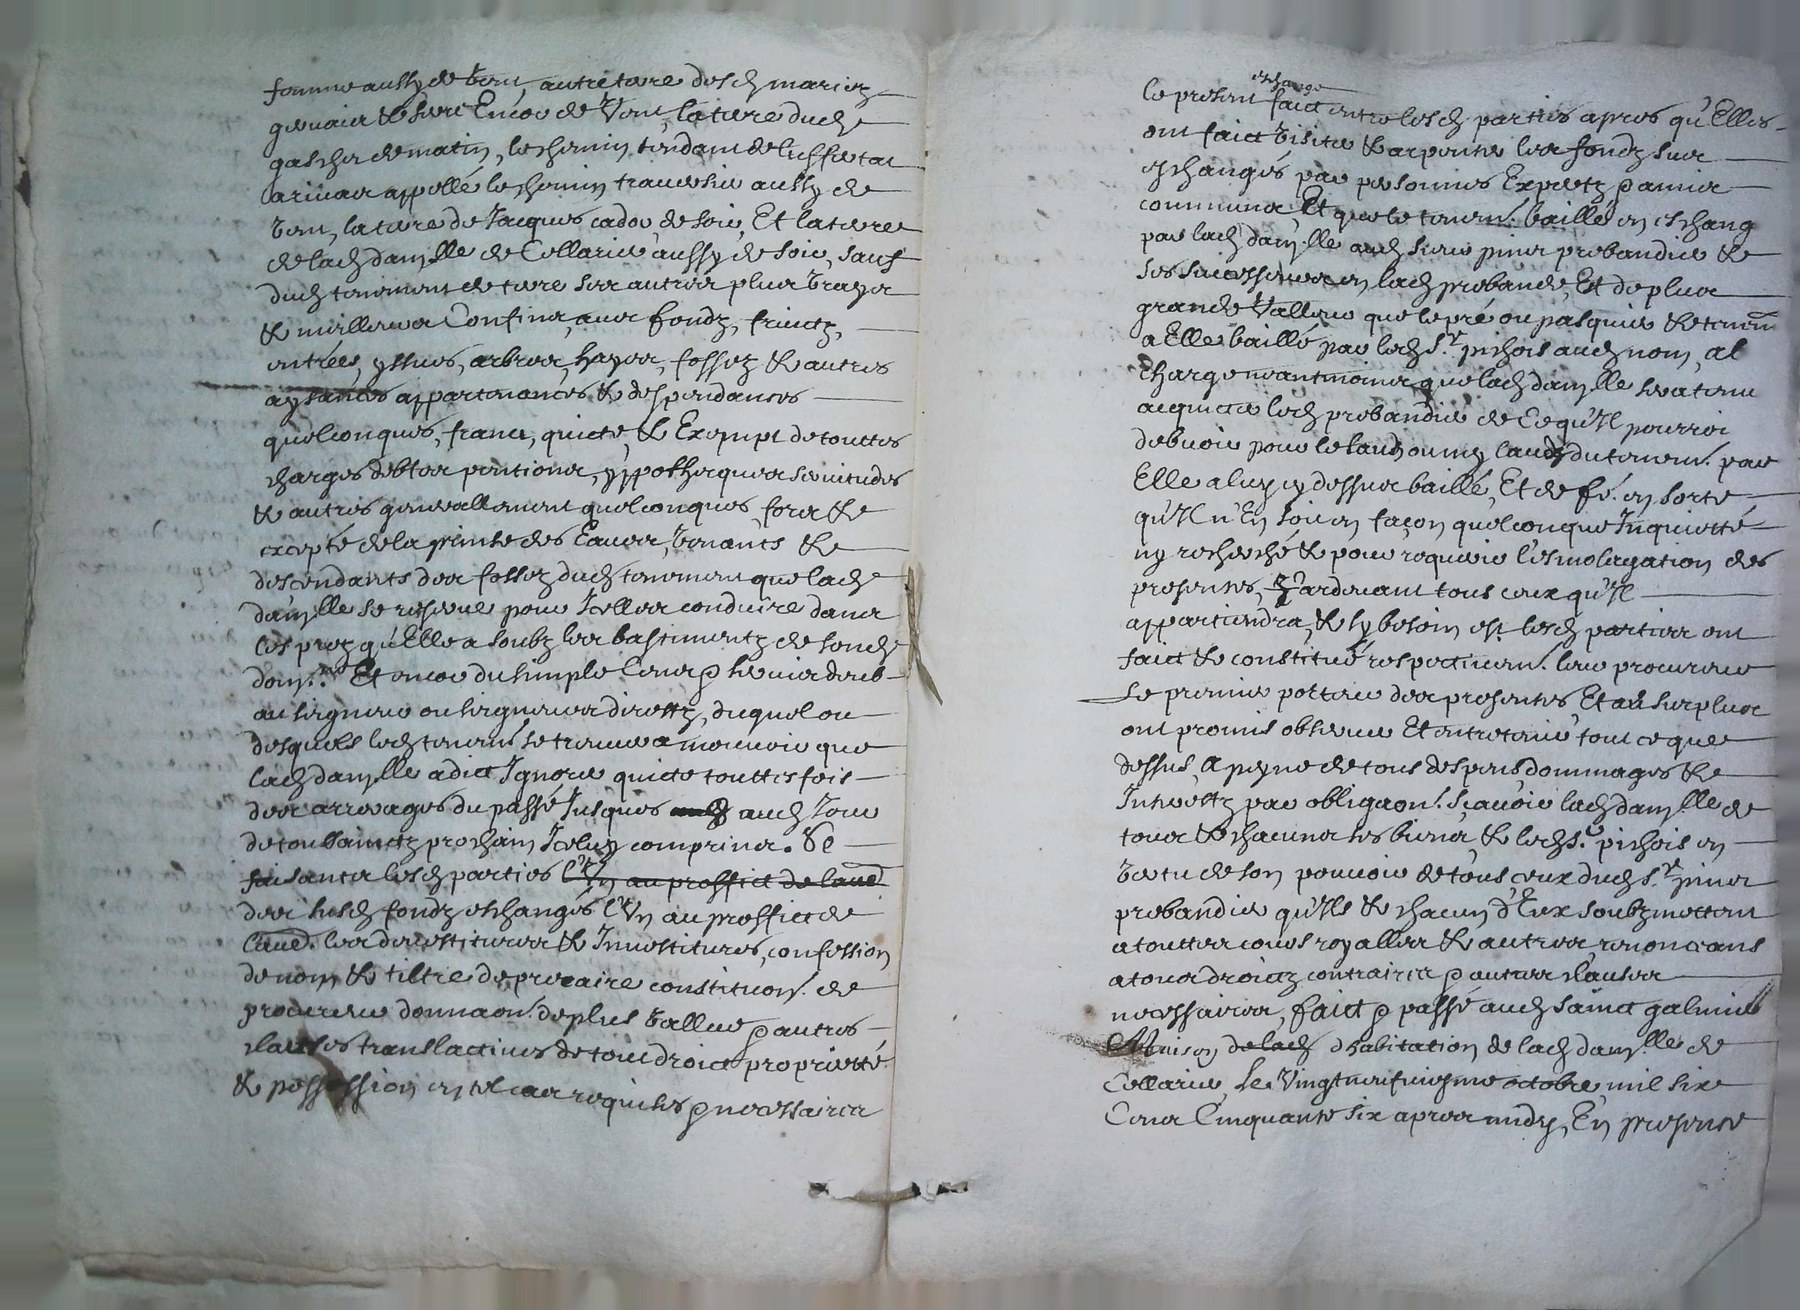 femme aussy de vent, autre terre desd mariez
gennair & serre Encor de Vent, la terre dud
gascher de matin, le chemin tendant de
appellé le chemin traversier aussy de
vent, la terre de Jacques cador de soir, Et la terre
de lad damlle de Cellarier aussy de soir, sauf
dud tenement de terre ses autres plus vrays
& meilleurs Confins, avec fondz, fruictz,
entrées, yssues, arbres, hayes, fossez & autres
aysances appartenances & despendances
quelconques, franc, quicte, & Exempt de touttes
charges debtes pentions, yppothecques servitudes
& autres generallement quelconques, fors &
excepté de la prinse des Eaues, venants &
descendants des fossez dud tenement que lad
damlle se reserve pour Icelles conduire dans
les prez qu'Elle a soubz les bastimentz de sond
dom.ne Et encor du simple Cens & servis deub
au seigneur ou seigneurs directz, duquel ou
desquels led tenem.t se treuve a mouvoir que
lad damlle a dict Ignorer quicte touttesfois
des arrerages du passé Jusques aud Jour
de toussainctz prochain Iceluy comprins. Se
faisants lesd parties l'Un au proffict de laud
des susd fondz eschangés l'Un au proffict de
laud. les devestitures & Investitures, confession
de nom & tiltre de precaire constituon. de
procureur donnaon. de plus vallue & autres
clauses translactives de tout droict proprietté
& possession en tel cas requises & necessaires
Le present eschange faict entre lesd parties apres qu'Elles
ont faict visiter & arpenter les fondz sus
eschangés par personnes Expertz & amis
communs Et que le tenem.t baillé en eschang
par lad damlle aud sieur prebandier &
ses successeurs en lad prebande, Et de plus
grande Valleur que le pré ou pasquier & tenem
a Elle baillé par led S.r pichois aud nom, al
charge neantmoins que lad damlle sera tenu
acquicter led prebandier de Ce qu'Il pourroi
debvoir pour le laud ou my laud du tenem.t par
Elle a luy cy dessus baillé, Et de fe. en sorte
qu'Il n'En soit en façon quelconque Inquietté
ny recherché & pour requerir l'esmologation des
presentes, pardevant tous ceux qu'Il
appartiendra, & sy besoin est lesd parties ont
faict & constitué respectivem.t leur procureur
Le premier porteur des presentes Et au surplus
ont promis observer Et entretenir tout ce que
dessus, a peyne de tous despens, dommages &
Interestz par obligaon. sçavoir lad damlle de
tous & chacuns ses biens, & led S.r pichois en
vertu de son pouvoir de tous ceux dud S.r
prebandier qu'Ils & chacun d'Eux soubzmettent
a touttes cours royalles & autres renonceans
a tous droictz contraires & autres clauses
necessaires, faict & passé aud sainct galmier
Maison de lad d'habitation de lad damlle de
Cellarier, Le Vingtneufuiesme octobre mil six
Cens Cinquante six apres midy, En presence